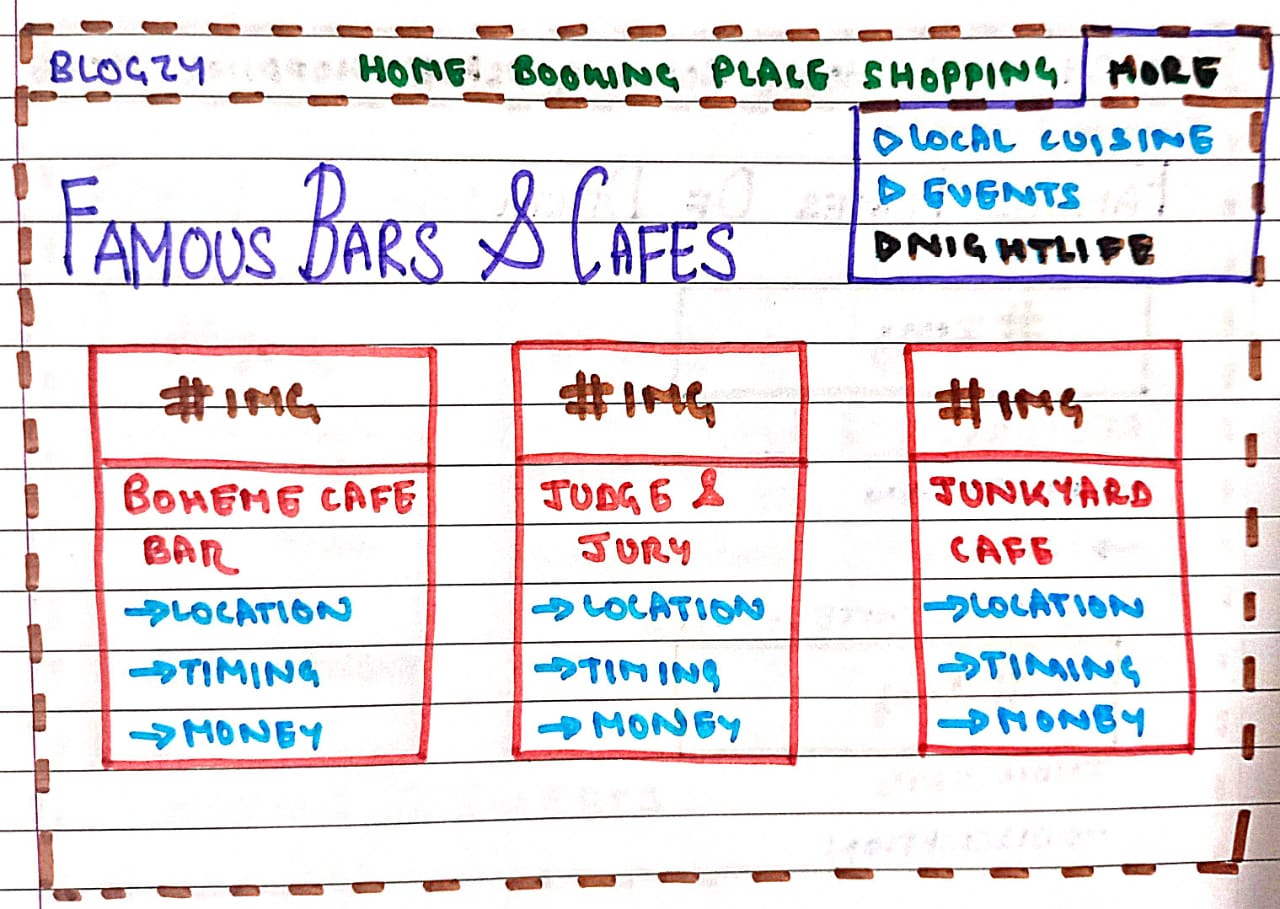 BLOGZY HOME BOOKING PLACE SHOPPING MORE
▷LOCAL CUISINE
▷ EVENTS
▷NIGHTLIFE
FAMOUS BARS & CAFES
#IMG
BOHEME CAFE
BAR
→LOCATION
→TIMING
→MONEY
#IMG
JUDGE &
JURY
→LOCATION
→TIMING
→MONEY
#IMG
JUNKYARD
CAFE
→LOCATION
→TIMING
→MONEY